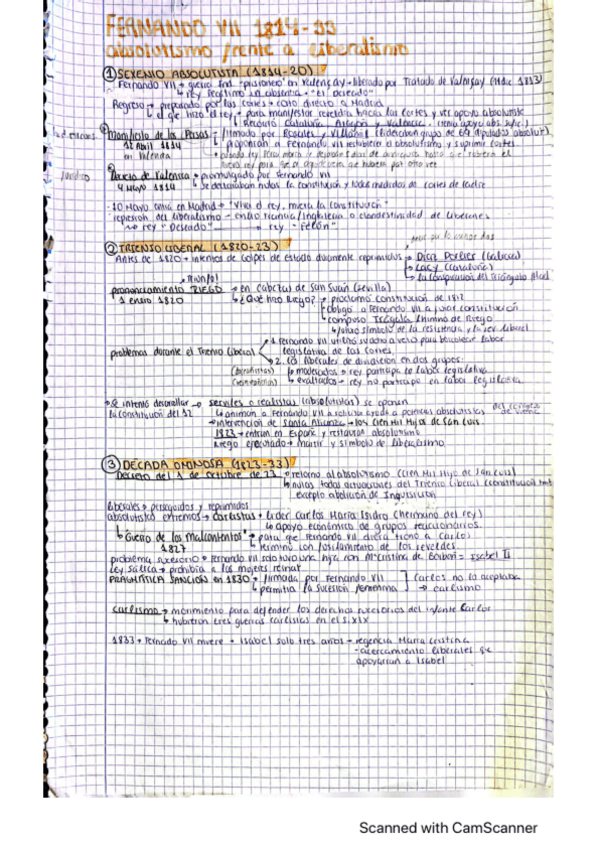 FERNANDO VII 1814-33
absolutismo frente a liberalismo
① SEXENIO ABSOLUTISTA (1814-20)
Fernando VII → guerra Ind. "prisionero" en Valençay → liberado por Tratado de Valençay (11 dic 1813)
↳ rey legítimo in absentia → "el Deseado"
Regreso → preparado por las cortes → corto directo a Madrid
↳ el que hizo el rey → para manifestar rebeldía hacia las cortes y ver apoyo absolutista
↳ Recorrió Cataluña, Aragón y Valencia
Manifiesto de los Persas → firmado por Rosales y Villamil (lideraban grupo de 69 diputados absolut)
12 Abril 1814 ↳ proponían a Fernando VII establecer el absolutismo y suprimir cortes
en Valencia
Decreto de Valencia → promulgado por Fernando VII
4 Mayo 1814 ↳ se declaraban nulas la constitución y todas medidas de cortes de Cádiz
· 10 Mayo entra en Madrid → "Viva el rey, muera la constitución"
represión del liberalismo → exilio Francia/Inglaterra o clandestinidad de liberales
rey "Deseado" → rey "Felón"
② TRIENIO LIBERAL (1820-23)
Antes de 1820 → intentos de golpes de estado duramente reprimidos → Díaz Porlier (Galicia)
↳ Lacy (Cataluña)
↳ la conspiración del Triángulo Mad
triunfo!
pronunciamiento RIEGO → en Cabezas de San Juan (Sevilla)
1 enero 1820 ↳ ¿Qué hizo Riego? → proclamó constitución de 1812
↳ obligó a Fernando VII a jurar constitución
↳ compuso Trágala / himno de Riego
símbolo de la resistencia y la rev. liberal
problemas durante el Trienio Liberal
1. Fernando VII utilizó su dcho a veto para bloquear labor
legislativa de las cortes.
2. los liberales de dividieron en dos grupos:
moderados → rey participe en labor legislativa
exaltados → rey no participe en labor legislativa
Se intentó desarrollar → serviles o realistas (absolutistas) se oponen
la constitución del 12 ↳ animan a Fernando VII a solicitar ayuda a potencias absolutistas
↳ intervención de Santa Alianza → los Cien Mil Hijos de San Luis
1823 → entran en España y restauran absolutismo
Riego ejecutado → mártir y símbolo de liberalismo
③ DÉCADA OMINOSA (1823-33)
Decreto del 1 de Octubre de 23 → retorno al absolutismo (Cien Mil Hijos de San Luis)
↳ nulas todas actuaciones del Trienio Liberal (constitución
excepto abolición de Inquisición
liberales → perseguidos y reprimidos
absolutistas extremos → Carlistas → líder Carlos María Isidro (hermano del rey)
↳ apoyo económico de grupos reaccionarios.
↳ "Guerra de los malcontentos" → para que Fernando VII diera trono a Carlos
1827 ↳ terminó con fusilamiento de los rebeldes
problema sucesorio → Fernando VII solo tuvo una hija con Mª Cristina de Borbón = Isabel II
Ley sálica → prohibía a las mujeres reinar
PRAGMÁTICA SANCIÓN en 1830 → firmada por Fernando VII Carlos no lo aceptaba
↳ permitía la sucesión femenina → carlismo
carlismo → movimiento para defender los derechos sucesorios del infante Carlos
↳ hubieron tres guerras carlistas en el s.XIX
1833 → Fernando VII muere → Isabel solo tres años → regencia María Cristina
- acercamiento liberales que
apoyarían a Isabel
Scanned with CamScanner